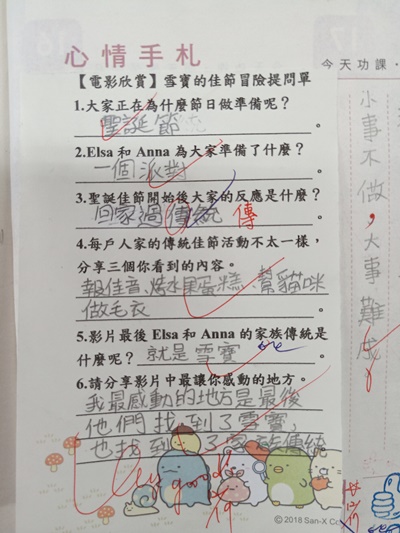 心情手札
今天功課・
【電影欣賞】雪寶的佳節冒險提問單
1.大家正在為什麼節日做準備呢？
聖誕節。
2.Elsa 和 Anna 為大家準備了什麼？
一個派對。
3.聖誕佳節開始後大家的反應是什麼？
回家過傳統 傳。
4.每戶人家的傳統佳節活動不太一樣，
分享三個你看到的內容。
報佳音、烤水果蛋糕、幫貓咪
做毛衣。
5.影片最後 Elsa 和 Anna 的家族傳統是
什麼呢？就是雪寶。
6.請分享影片中最讓你感動的地方。
我最感動的地方是最後
他們找到了雪寶，
也找到了家族傳統
Very good
©2018 San-X Co
小事不做，大事難成